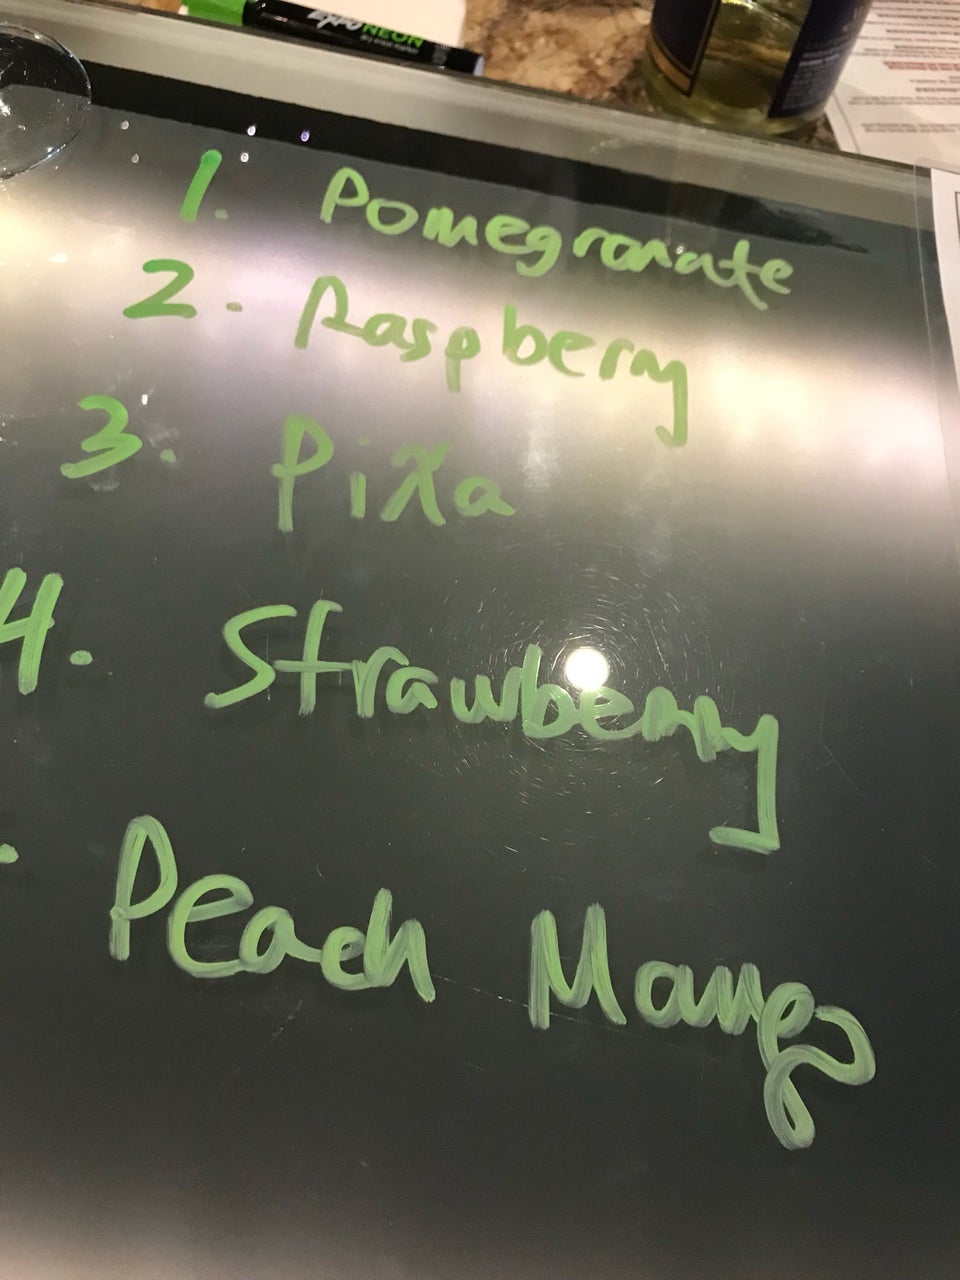 Expo NEON
dry erase marker
1. Pomegranate
2. Raspberry
3. Pixa
4. Strawberry
. Peach Mango